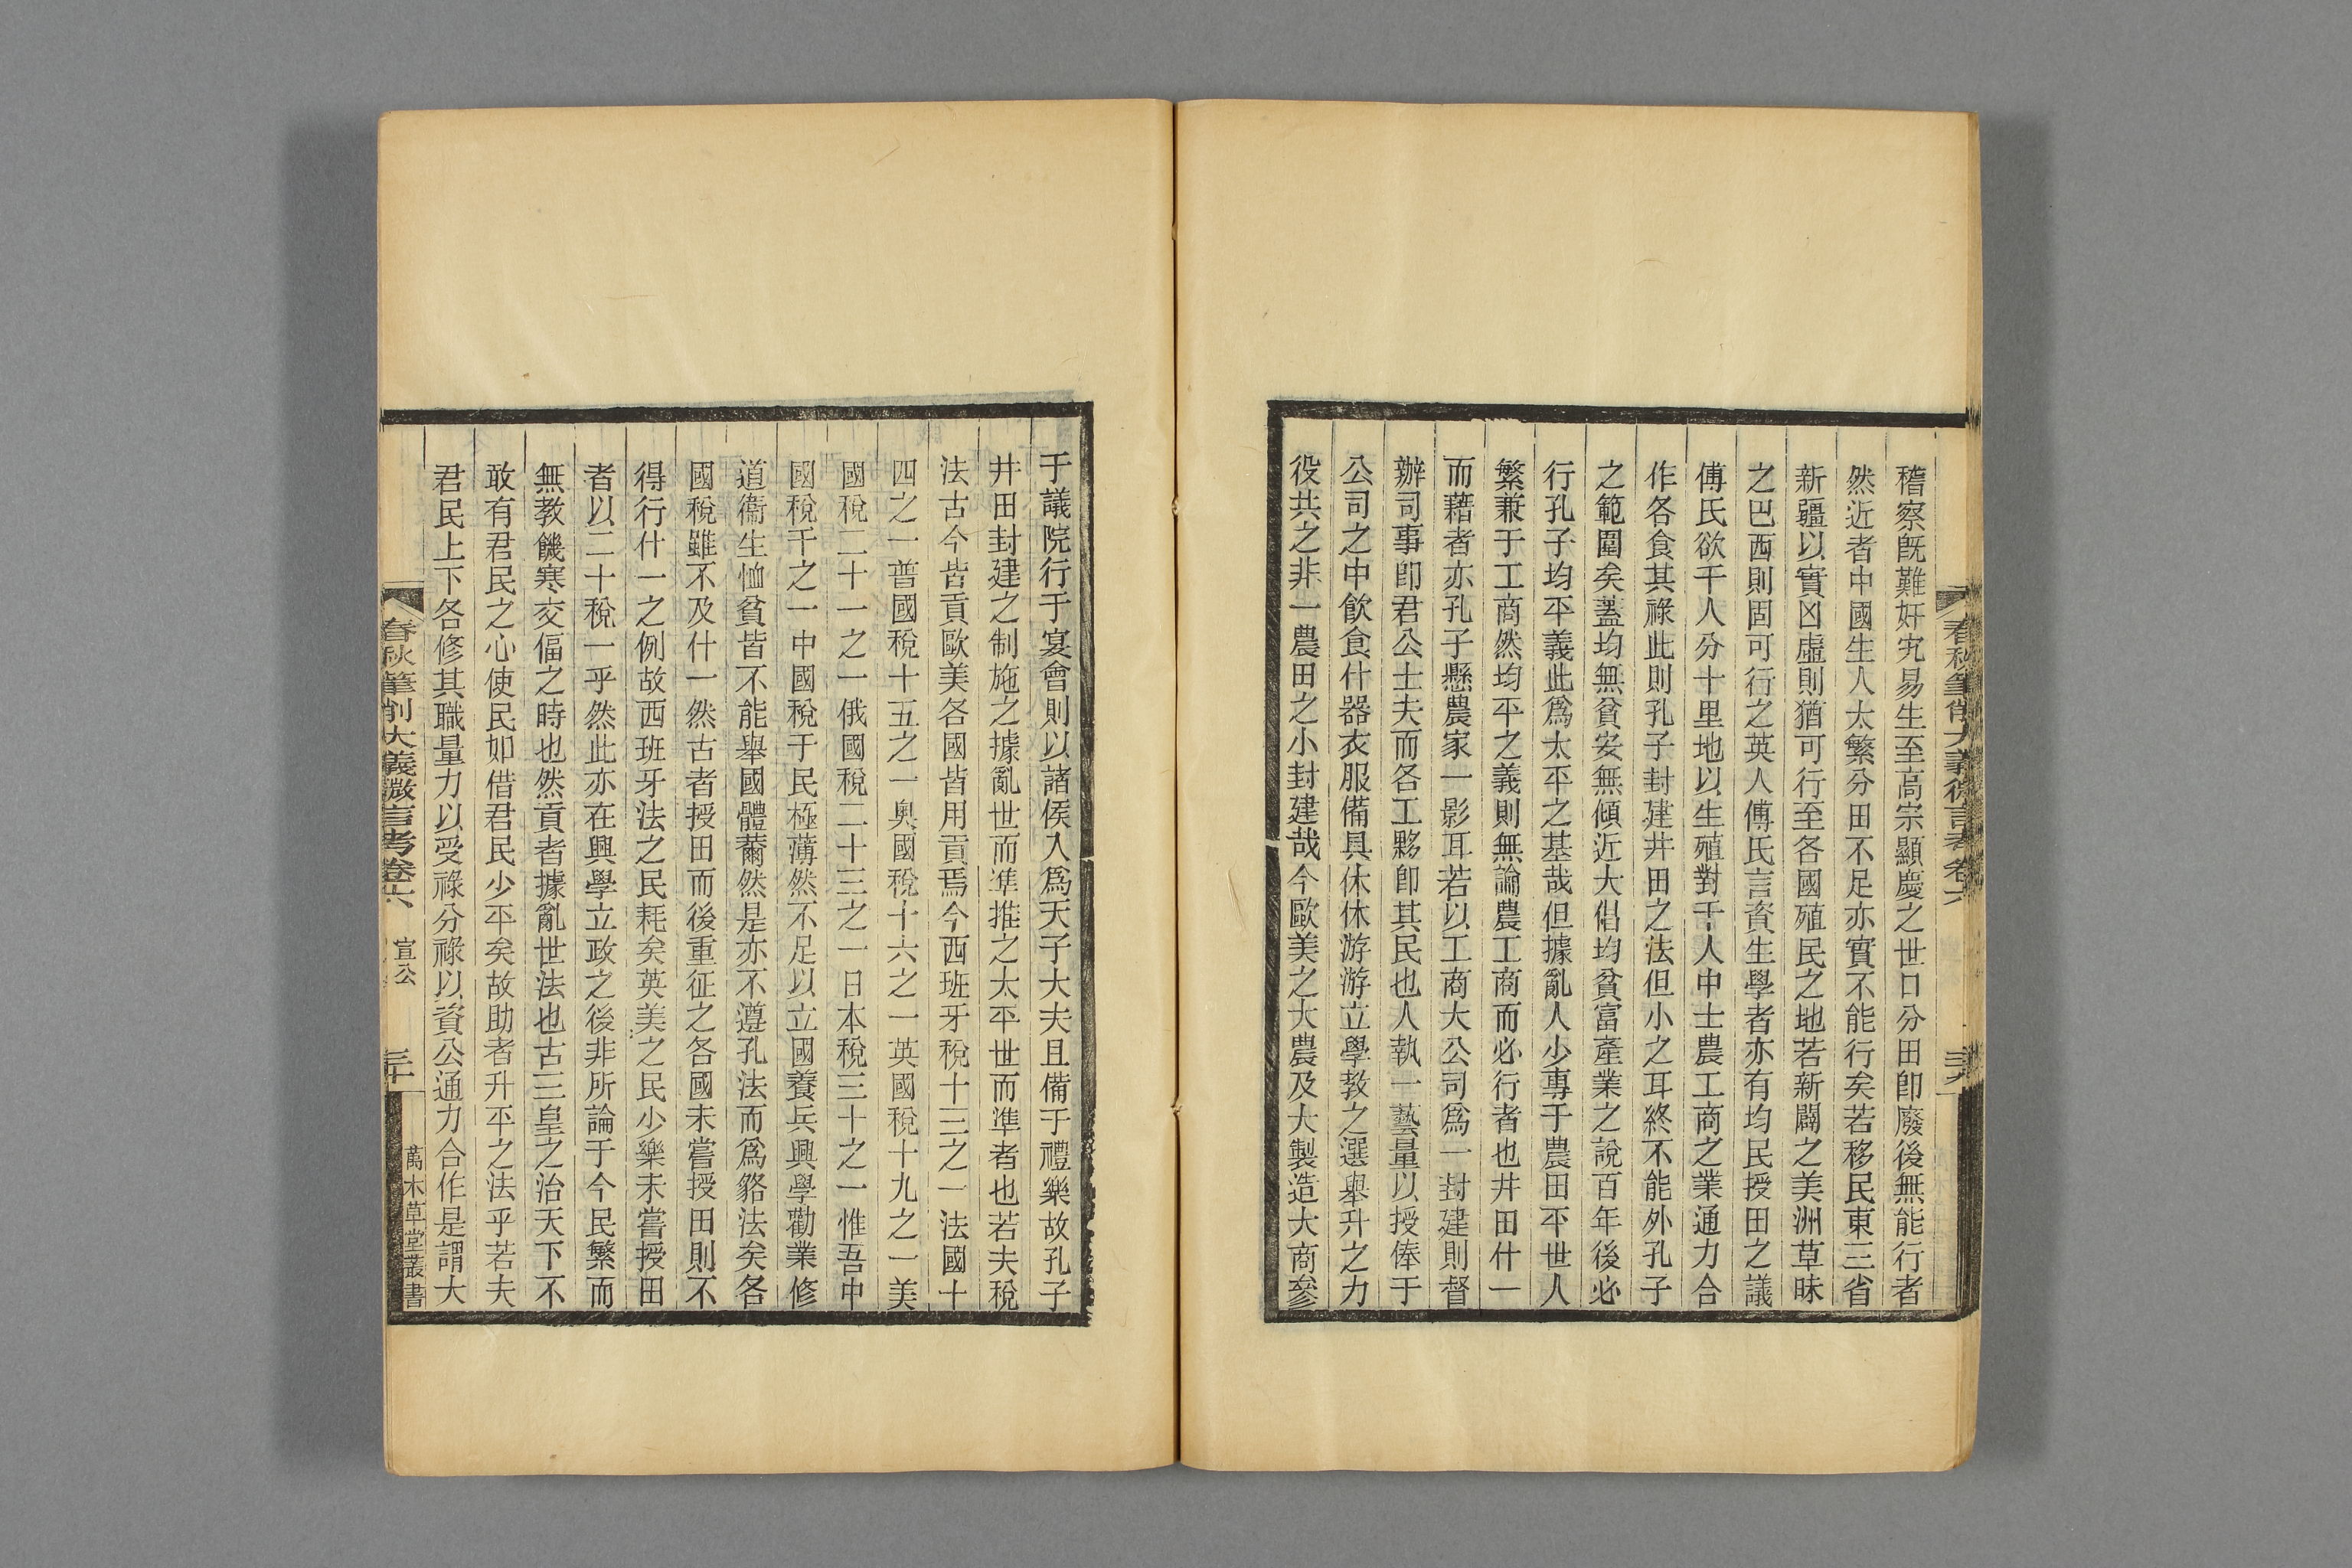 稽察旣難奸宄易生至高宗顯慶之世口分田卽廢後無能行者
然近者中國生人太繁分田不足亦實不能行矣若移民東三省
新疆以實凶虛則猶可行至各國殖民之地若新闢之美洲草昧
之巴西則固可行之英人傅氏言資生學者亦有均民授田之議
傅氏欲千人分十里地以生殖對千人中士農工商之業通力合
作各食其祿此則孔子封建井田之法但小之耳終不能外孔子
之範圍矣蓋均無貧安無傾近大倡均貧富產業之說百年後必
行孔子均平義此爲太平之基哉但據亂人少專于農田平世人
繁兼于工商然均平之義則無論農工商而必行者也井田什一
而藉者亦孔子懸農家一影耳若以工商大公司爲一封建則督
辦司事卽君公士夫而各工夥卽其民也人執一藝量以授俸于
公司之中飮食什器衣服備具休休游游立學教之選舉升之力
役共之非一農田之小封建哉今歐美之大農及大製造大商參
春秋筆削大義微言考卷六
于議院行于宴會則以諸侯入爲天子大夫且備于禮樂故孔子
井田封建之制施之據亂世而準推之太平世而準者也若夫稅
法古今皆貢歐美各國皆用貢焉今西班牙稅十三之一法國十
四之一普國稅十五之一奥國稅十六之一英國稅十九之一美
國稅二十一之一俄國稅二十三之一日本稅三十之一惟吾中
國稅千之一中國稅于民極薄然不足以立國養兵興學勸業修
道衞生恤貧皆不能舉國體薾然是亦不遵孔法而爲貉法矣各
國稅雖不及什一然古者授田而後重征之各國未嘗授田則不
得行什一之例故西班牙法之民耗矣英美之民少樂未嘗授田
者以二十稅一乎然此亦在興學立政之後非所論于今民繁而
無教饑寒交偪之時也然貢者據亂世法也古三皇之治天下不
敢有君民之心使民如借君民少平矣故助者升平之法乎若夫
君民上下各修其職量力以受祿分祿以資公通力合作是謂大
春秋筆削大義微言考卷六 宣公 三十 萬木草堂叢書